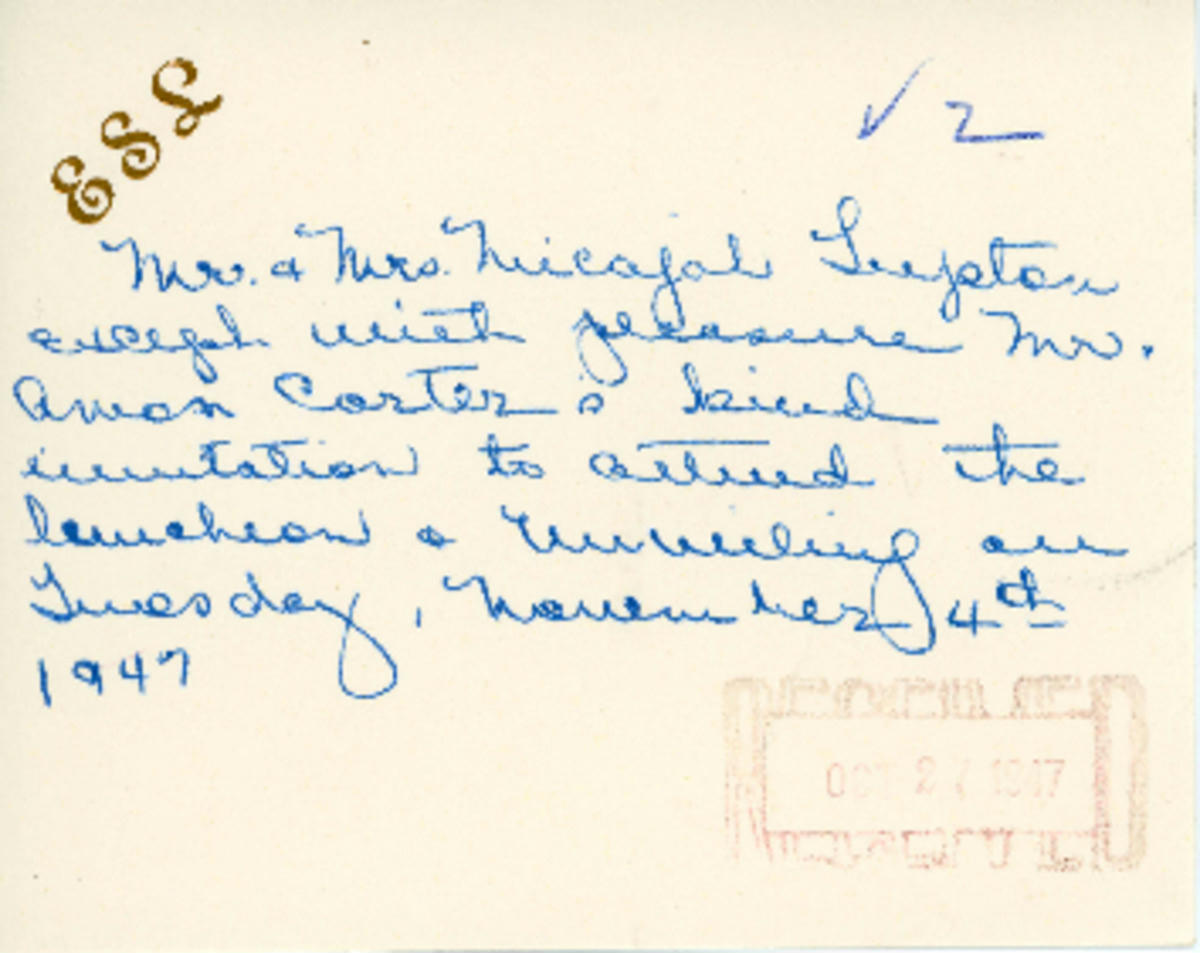 ESL
✓ 2
Mr. & Mrs. Micajah Lupton
accept with pleasure Mr.
Amon Carter's kind
invitation to attend the
luncheon & Unveiling on
Tuesday, November 4th
1947
OCT 27 1947